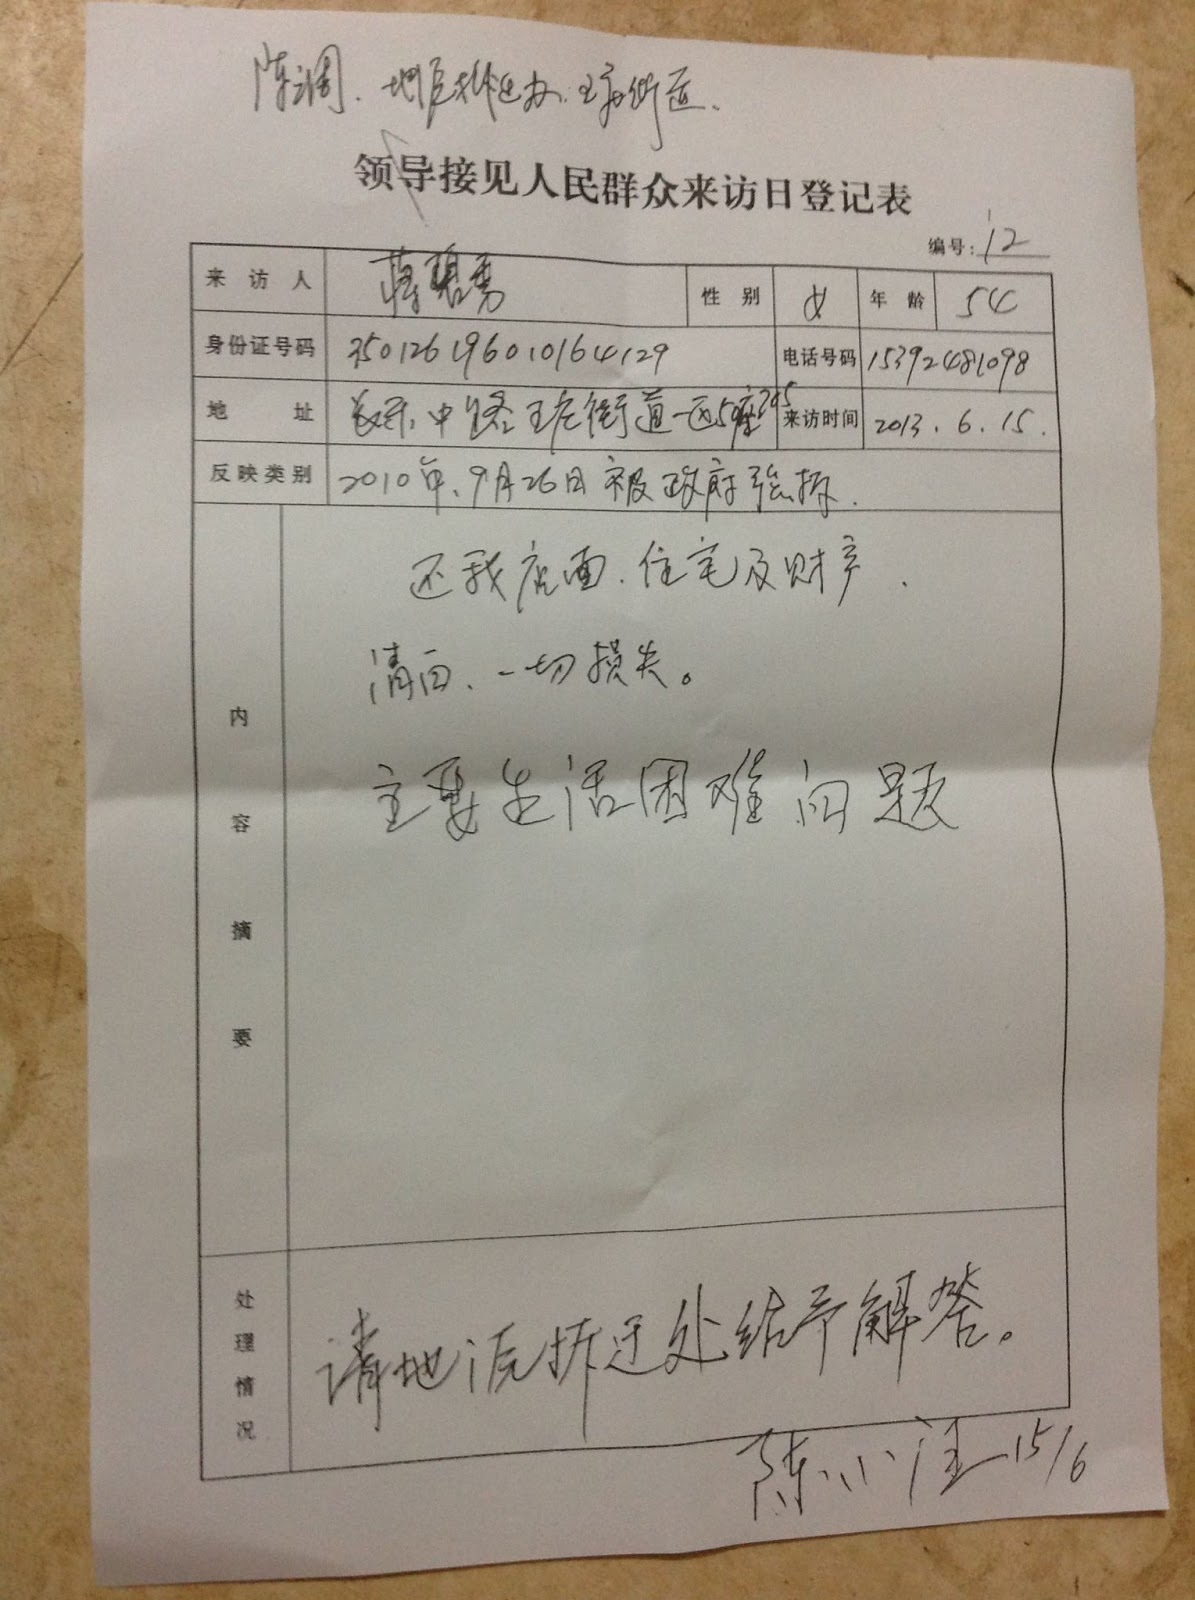 陈调、地房拆迁办、王庄街道、
领导接见人民群众来访日登记表
编号：12
来访人 蒋碧秀 性别 女 年龄 54
身份证号码 350126196010164129 电话号码 15392481098
地址 中路王庄街道一区5座305 来访时间 2013.6.15.
反映类别 2010年、9月26日被政府强拆、
内容摘要
还我店面、住宅及财产、
清白、一切损失。
主要生活困难问题
处理情况
请地房拆迁处给予解答。
陈小 15/6